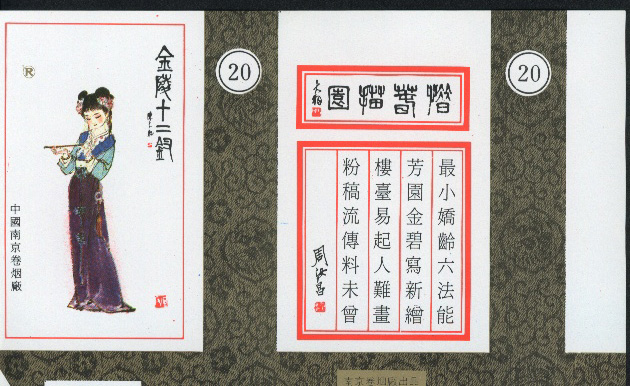 金陵十二釵
®
中國南京卷烟廠
20
惜春描園
最小嬌齡六法能
芳園金碧寫新繪
樓臺易起人難畫
粉稿流傳料未曾
周汝昌
20